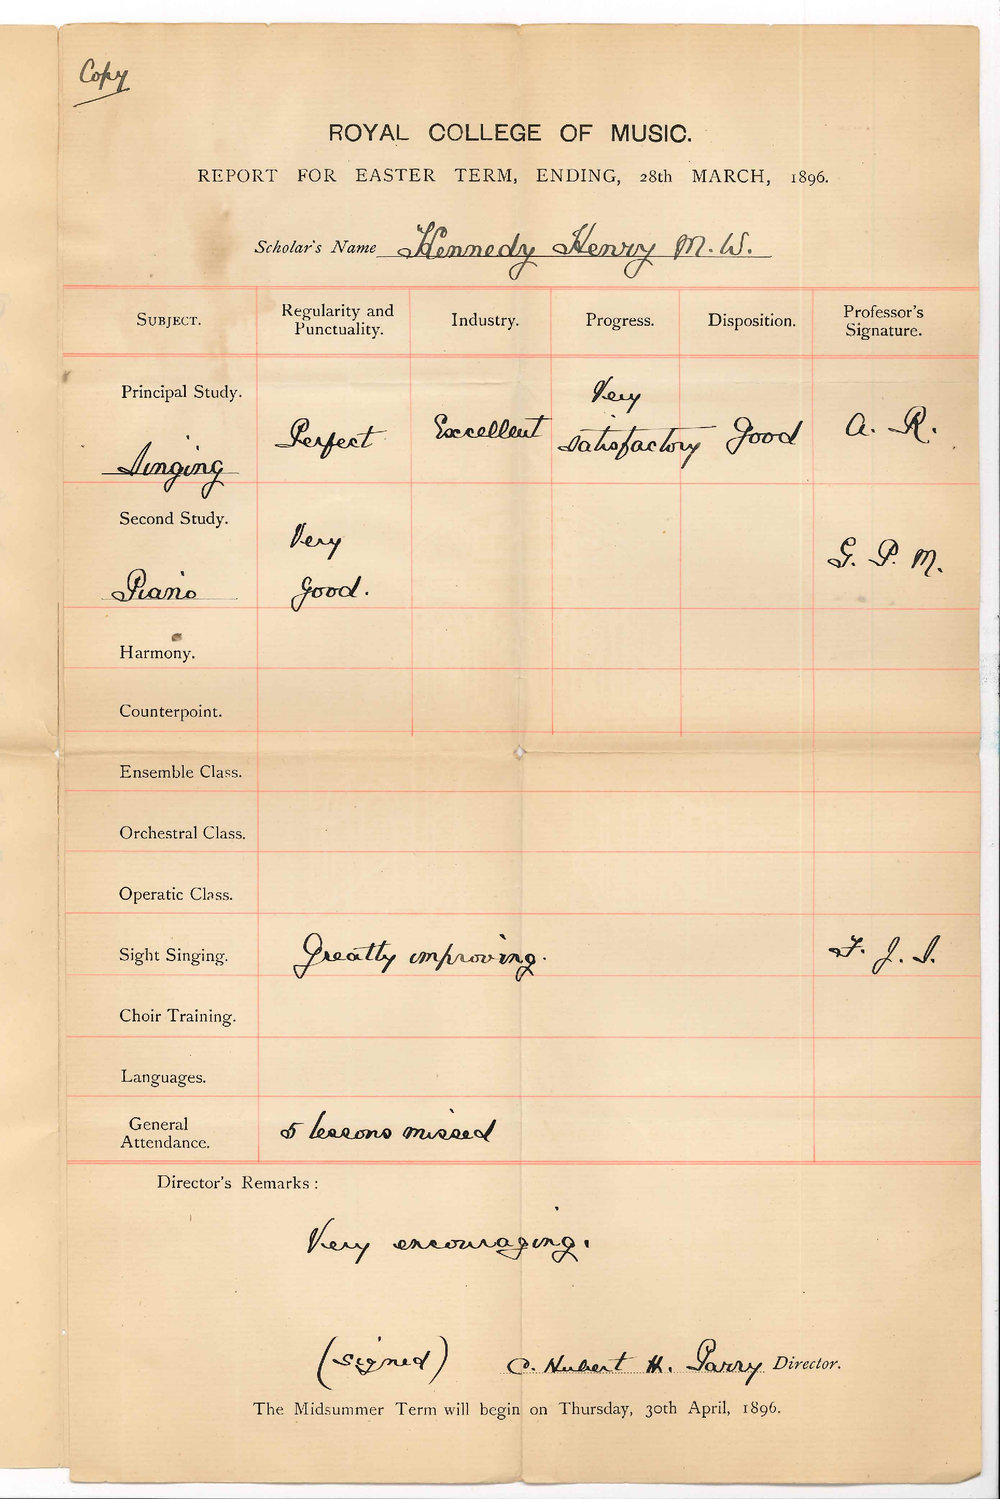 Copy
ROYAL COLLEGE OF MUSIC.
REPORT FOR EASTER TERM, ENDING, 28th MARCH, 1896.
Scholar's Name Kennedy Henry M. W.
SUBJECT. Regularity and Punctuality. Industry. Progress. Disposition. Professor's Signature.
Principal Study.
Singing Perfect Excellent Very satisfactory Good A. R.
Second Study.
Piano Very Good. G. P. M.
Harmony.
Counterpoint.
Ensemble Class.
Orchestral Class.
Operatic Class.
Sight Singing. Greatly improving. F. J. S.
Choir Training.
Languages.
General Attendance. 5 lessons missed
Director's Remarks :
Very encouraging.
(signed) C. Hubert H. Parry Director.
The Midsummer Term will begin on Thursday, 30th April, 1896.